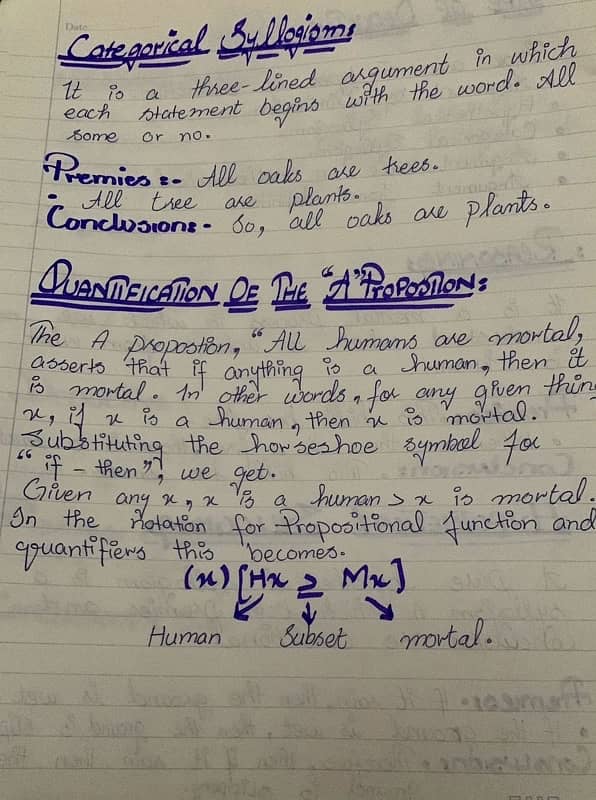 Date
Categorical Syllogism:
It is a three-lined argument in which
each statement begins with the word. All
some or no.
Premies :- All oaks are trees.
• All tree are plants.
Conclusion:- So, all oaks are plants.
QUANTIFICATION OF THE "A" PROPOSITION:
The A propostion, "All humans are mortal,
asserts that if anything is a human, then it
is mortal. In other words, for any given thing
x, if x is a human, then x is mortal.
Substituting the horseshoe symbol for
"if - then", we get.
Given any x, x is a human > x is mortal.
In the notation for Propositional function and
qquantifiers this becomes.
(x) [Hx ⊇ Mx]
Human Subset mortal.